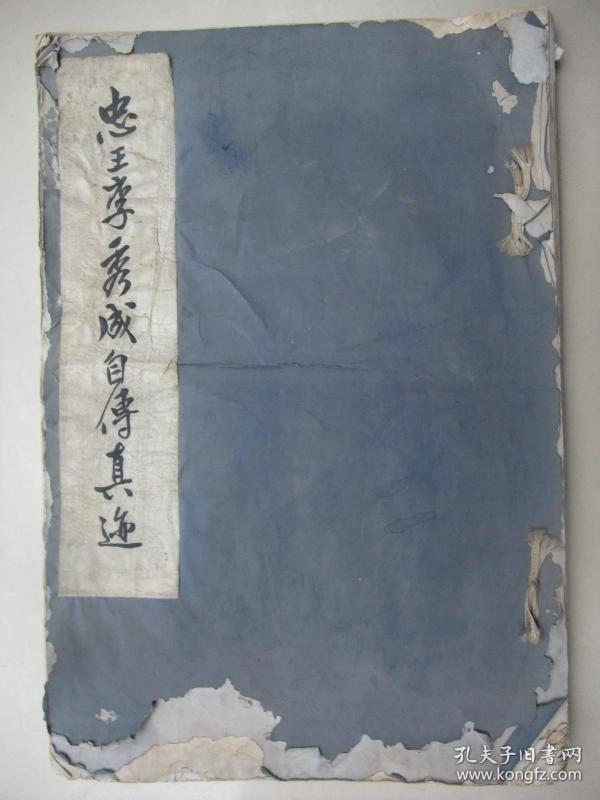 忠王李秀成自傳真迹
孔夫子旧书网
www.kongfz.com